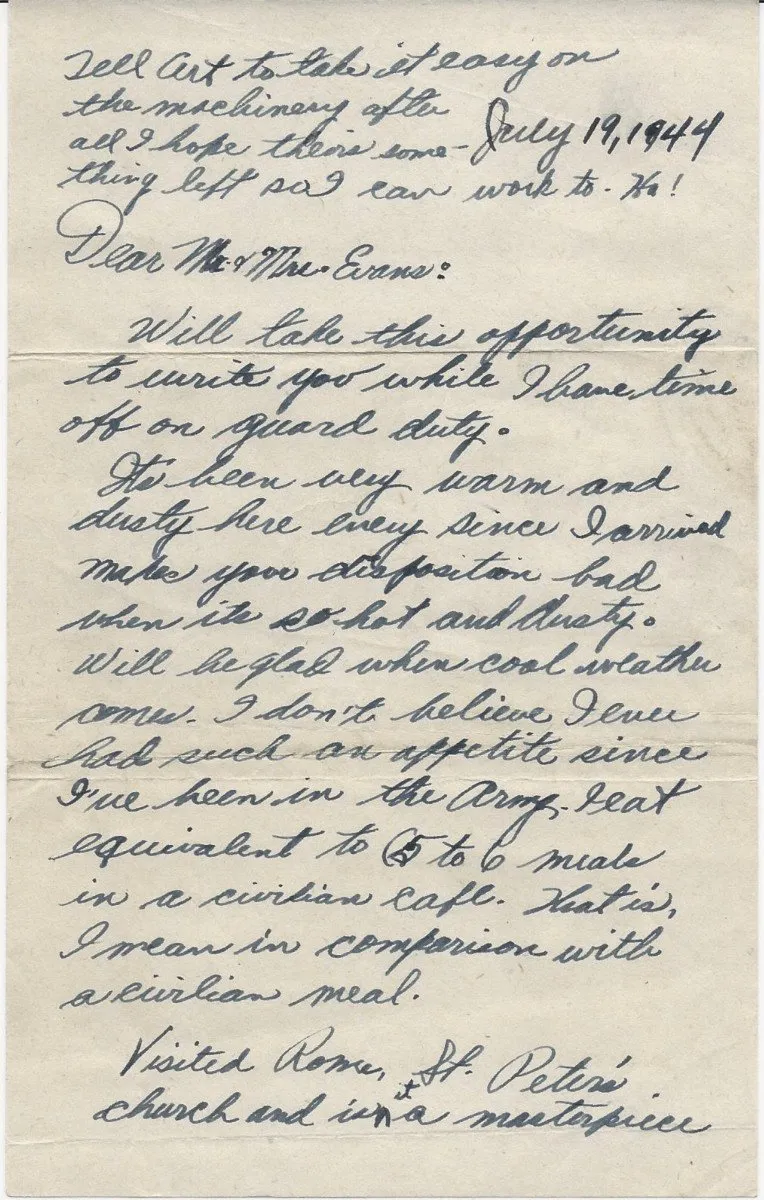 Tell Art to take it easy on
the machinery after
all I hope theirs some-
thing left so I can work to. Ha!
July 19, 1944
Dear Mr. & Mrs. Evans:
Will take this opportunity
to write you while I have time
off on guard duty.
Its been very warm and
dusty here every since I arrived
makes your disposition bad
when its so hot and dusty.
Will be glad when cool weather
comes. I don't believe I ever
had such an appetite since
I've been in the Army. I eat
equivalent to 5 to 6 meals
in a civilian cafe. That is,
I mean in comparison with
a civilian meal.
Visited Rome, St. Peter's
church and is it a masterpiece